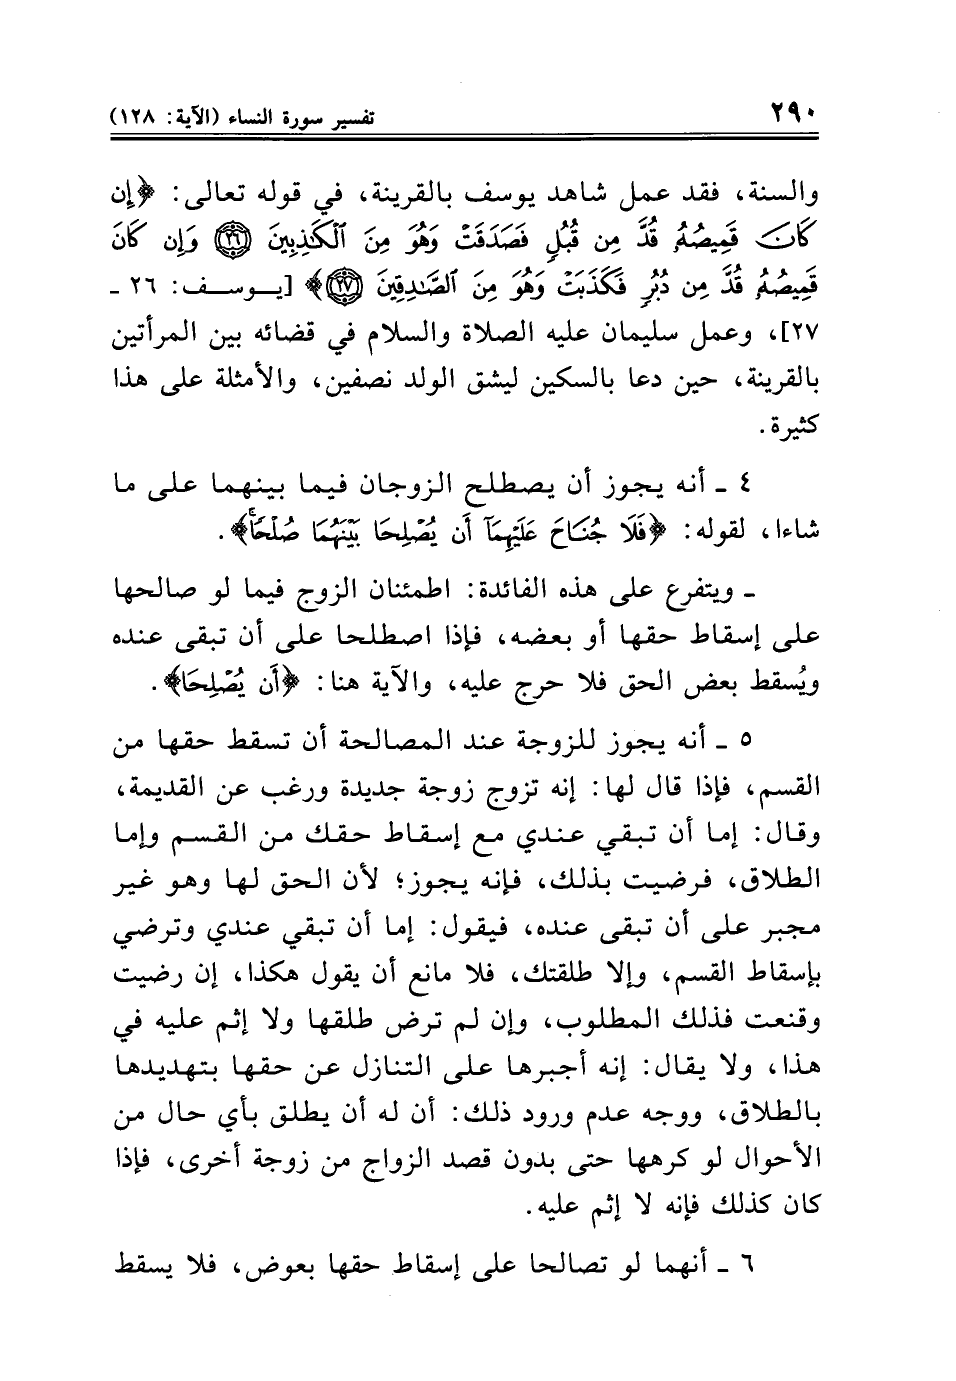 ٢٩٠ تفسير سورة النساء (الآية: ١٢٨)
والسنة، فقد عمل شاهد يوسف بالقرينة، في قوله تعالى: ﴿إِن
كَانَ قَمِيصُهُۥ قُدَّ مِن قُبُلٍ فَصَدَقَتْ وَهُوَ مِنَ ٱلْكَٰذِبِينَ ۝٢٦ وَإِن كَانَ
قَمِيصُهُۥ قُدَّ مِن دُبُرٍ فَكَذَبَتْ وَهُوَ مِنَ ٱلصَّٰدِقِينَ ۝٢٧﴾ [يوسف: ٢٦ ـ
٢٧]، وعمل سليمان عليه الصلاة والسلام في قضائه بين المرأتين
بالقرينة، حين دعا بالسكين ليشق الولد نصفين، والأمثلة على هذا
كثيرة.
٤ ـ أنه يجوز أن يصطلح الزوجان فيما بينهما على ما
شاءا، لقوله: ﴿فَلَا جُنَاحَ عَلَيْهِمَآ أَن يُصْلِحَا بَيْنَهُمَا صُلْحًاۚ﴾.
ـ ويتفرع على هذه الفائدة: اطمئنان الزوج فيما لو صالحها
على إسقاط حقها أو بعضه، فإذا اصطلحا على أن تبقى عنده
ويُسقط بعض الحق فلا حرج عليه، والآية هنا: ﴿أَن يُصْلِحَا﴾.
٥ ـ أنه يجوز للزوجة عند المصالحة أن تسقط حقها من
القسم، فإذا قال لها: إنه تزوج زوجة جديدة ورغب عن القديمة،
وقال: إما أن تبقي عندي مع إسقاط حقك من القسم وإما
الطلاق، فرضيت بذلك، فإنه يجوز؛ لأن الحق لها وهو غير
مجبر على أن تبقى عنده، فيقول: إما أن تبقي عندي وترضي
بإسقاط القسم، وإلا طلقتك، فلا مانع أن يقول هكذا، إن رضيت
وقنعت فذلك المطلوب، وإن لم ترض طلقها ولا إثم عليه في
هذا، ولا يقال: إنه أجبرها على التنازل عن حقها بتهديدها
بالطلاق، ووجه عدم ورود ذلك: أن له أن يطلق بأي حال من
الأحوال لو كرهها حتى بدون قصد الزواج من زوجة أخرى، فإذا
كان كذلك فإنه لا إثم عليه.
٦ ـ أنهما لو تصالحا على إسقاط حقها بعوض، فلا يسقط